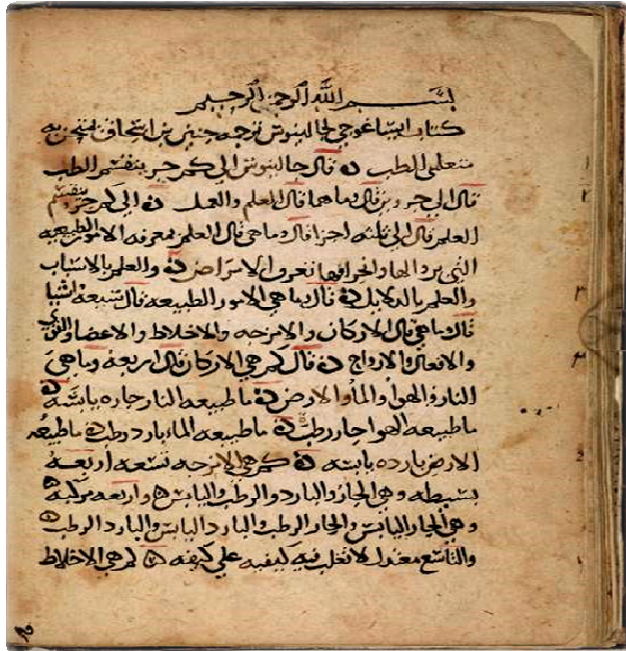 بسم الله الرحمن الرحيم
كتاب ايساغوجي لجالينوس ترجمه حنين بن اسحاق يمتحن به
متعلمي الطب ن قال جالينوس الي كم جز ينقسم الطب
قال الي جزوين قال وما هما قال العلم والعمل ن الي كم جزو ينقسم
العلم قال الي ثلثه اجزا قال وما هي قال العلم بمعرفه الامور الطبيعيه
التي تعرف الامراض ن والعلم بالاسباب
والعلم بالدلايل ن قال ما هي الامور الطبيعيه قال سبعه اشيا
قال ما هي قال الاركان والامزجه والاخلاط والاعضا والقوي
والافعال والارواح ن قال كم هي الاركان قال اربعه وما هي
النار والهوا والما والارض ن ما طبيعه النار حاره يابسه ن
ما طبيعه الهوا حار رطب ن ما طبيعه الما بارد رطب ن ما طبيعه
الارض بارده يابسه ن كم هي الامزجه تسعه اربعه
بسيطه وهي الحار والبارد والرطب واليابس ه واربعه مركبه ه
وهي الحار اليابس والحار الرطب والبارد اليابس والبارد الرطب ه
والتاسع معتدل لا تغلب فيه كيفيه علي كيفيه ه كم هي الاخلاط